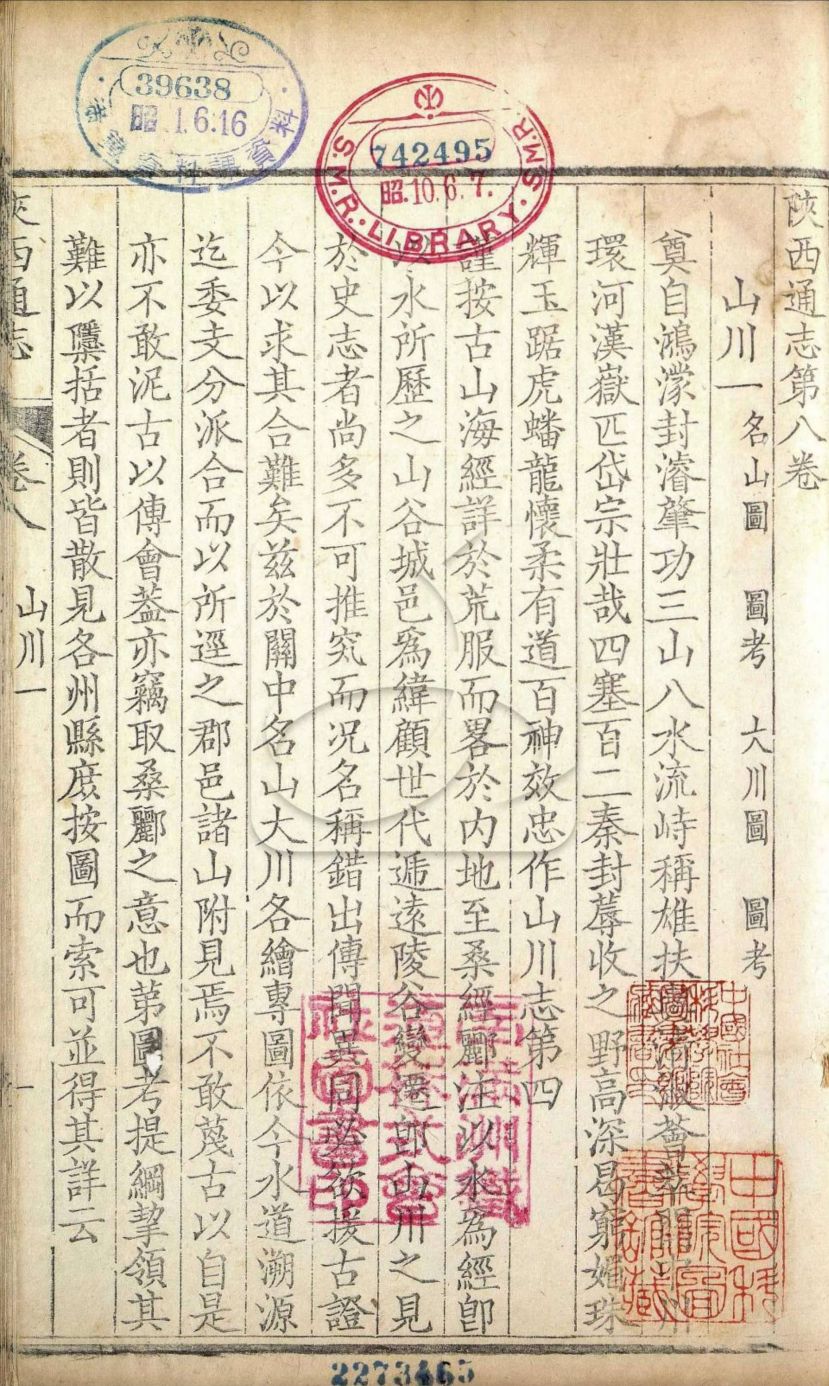 陝西通志第八卷
山川一 名山圖 圖考 大川圖 圖考
奠自鴻濛封濬肇功三山八水流峙稱雄扶薈萃
環河漢嶽匹岱宗壯哉四塞百二秦封蓐收之野高深曷窮媚珠
輝玉踞虎蟠龍懷柔有道百神效忠作山川志第四
謹按古山海經詳於荒服而畧於内地至桑經酈注以水爲經卽
以水所歷之山谷城邑爲緯顧世代遞遠陵谷變遷卽山川之見
於史志者尚多不可推究而况名稱錯出傳聞異同必欲援古證
今以求其合難矣兹於關中名山大川各繪專圖依今水道溯源
迄委支分派合而以所逕之郡邑諸山附見焉不敢蔑古以自是
亦不敢泥古以傳會葢亦竊取桑酈之意也第圖考提綱挈領其
難以櫽括者則皆散見各州縣庶按圖而索可並得其詳云
陝西通志 卷八 山川一 一
39638
昭 1.6.16
S.M.R. LIBRARY. S.M.R.
742495
昭.10.6.7.
中國科學院圖書館藏
2273465